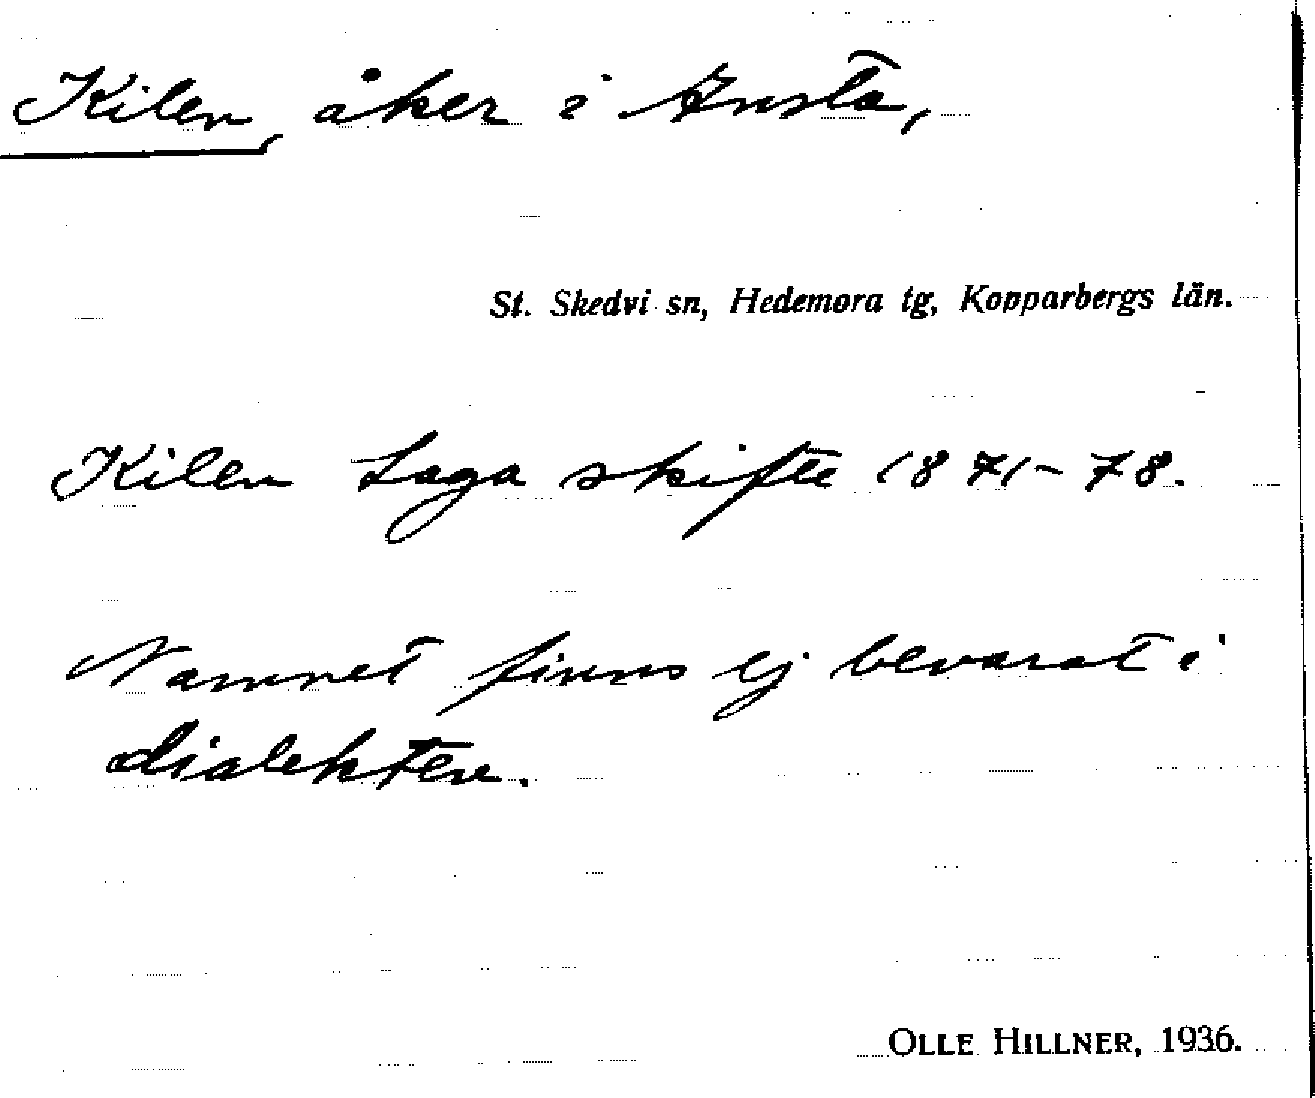 Kilen, åker i Ansta,
St. Skedvi sn, Hedemora tg, Kopparbergs län.
Kilen Laga skifte 1871-78.
Namnet finns ej bevarat i
dialekten.
OLLE HILLNER, 1936.